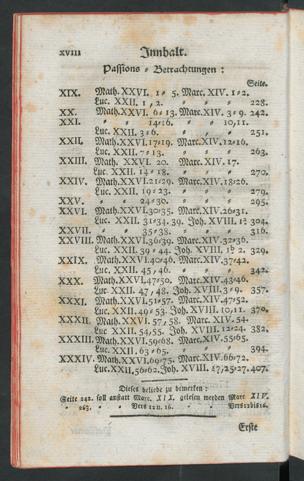 XVIII Innhalt.
Passions = Betrachtungen:
Seite.
XIX. Math. XXVI. 1 = 5. Marc. XIV. 1=2.
Luc. XXII. 1, 2. = = = 228.
XX. Math. XXVI. 6=13. Marc. XIV. 3=9. 242.
XXI. = = 14=16. = = 10, 11.
Luc. XXII. 3=6. = = = 251.
XXII. Math. XXVI. 17=19. Marc. XIV. 12=16.
Luc. XXII. 7=13. = = = 263.
XXIII. Math. XXVI. 20. Marc. XIV. 17.
Luc. XXII. 14=18. = = = 270.
XXIV. Math. XXVI. 21=29. Marc. XIV. 18=26.
Luc. XXII. 19=23. = = = 279.
XXV. = = 24=30. = = 295.
XXVI. Math. XXVI. 30=35. Marc. XIV. 26=31.
Luc. XXII. 31=34. 39. Joh. XVIII. 304.
XXVII. = = 35=38. = = 316.
XXVIII. Math. XXVI. 36=39. Marc. XIV. 32=36.
Luc. XXII. 39=44. Joh. XVIII. 329.
XXIX. Math. XXVI. 40=46. Marc. XIV. 37=42.
Luc. XXII. 45, 46. = = = 342.
XXX. Math. XXVI. 47=50. Marc. XIV. 43=46.
Luc. XXII. 47, 48. Joh. XVIII. 3=9. 357.
XXXI. Math. XXVI. 51=57. Marc. XIV. 47=52.
Luc. XXII. 49=53. Joh. XVIII. 10, 11. 370.
XXXII. Math. XXVI. 57, 58. Marc. XIV. 54.
Luc. XXII. 54, 55. Joh. XVIII. 12=24. 382.
XXXIII. Math. XXVI. 59=68. Marc. XIV. 55=65.
Luc. XXII. 63=65. = = 394.
XXXIV. Math. XXVI. 69=75. Marc. XIV. 66=72.
Luc. XXII. 56=62. Joh. XVIII. 17, 25=27. 407.
Dieses beliebe zu bemerken:
Seite 242. soll anstatt Marc. XIX. gelesen werden Marc XIV.
= 263. = Vers 12 u. 16. = = Vers 12 bis 16.
Erste